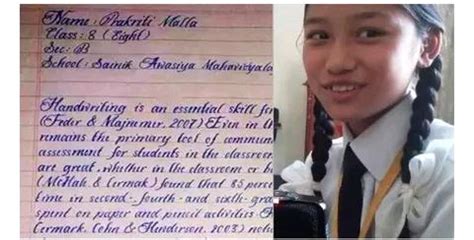 Name : Prakriti Malla
Class : 8 (Eight)
Sec : B
School : Sainik Awasiya Mahavidyalay
Handwriting is an essential skill for
(Feder & Majnemer, 2007) Even in th
remains the primary tool of commun
assessment for students in the classroom
are great, whether in the classroom or b
(McHale & Cermak) found that 85 perce
time in second-, fourth- and sixth- grad
spent on paper and pencil activities
Cermark, Cohn & Henderson, 2003) note